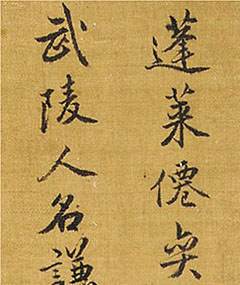 蓬萊僊奕
武陵人名謙